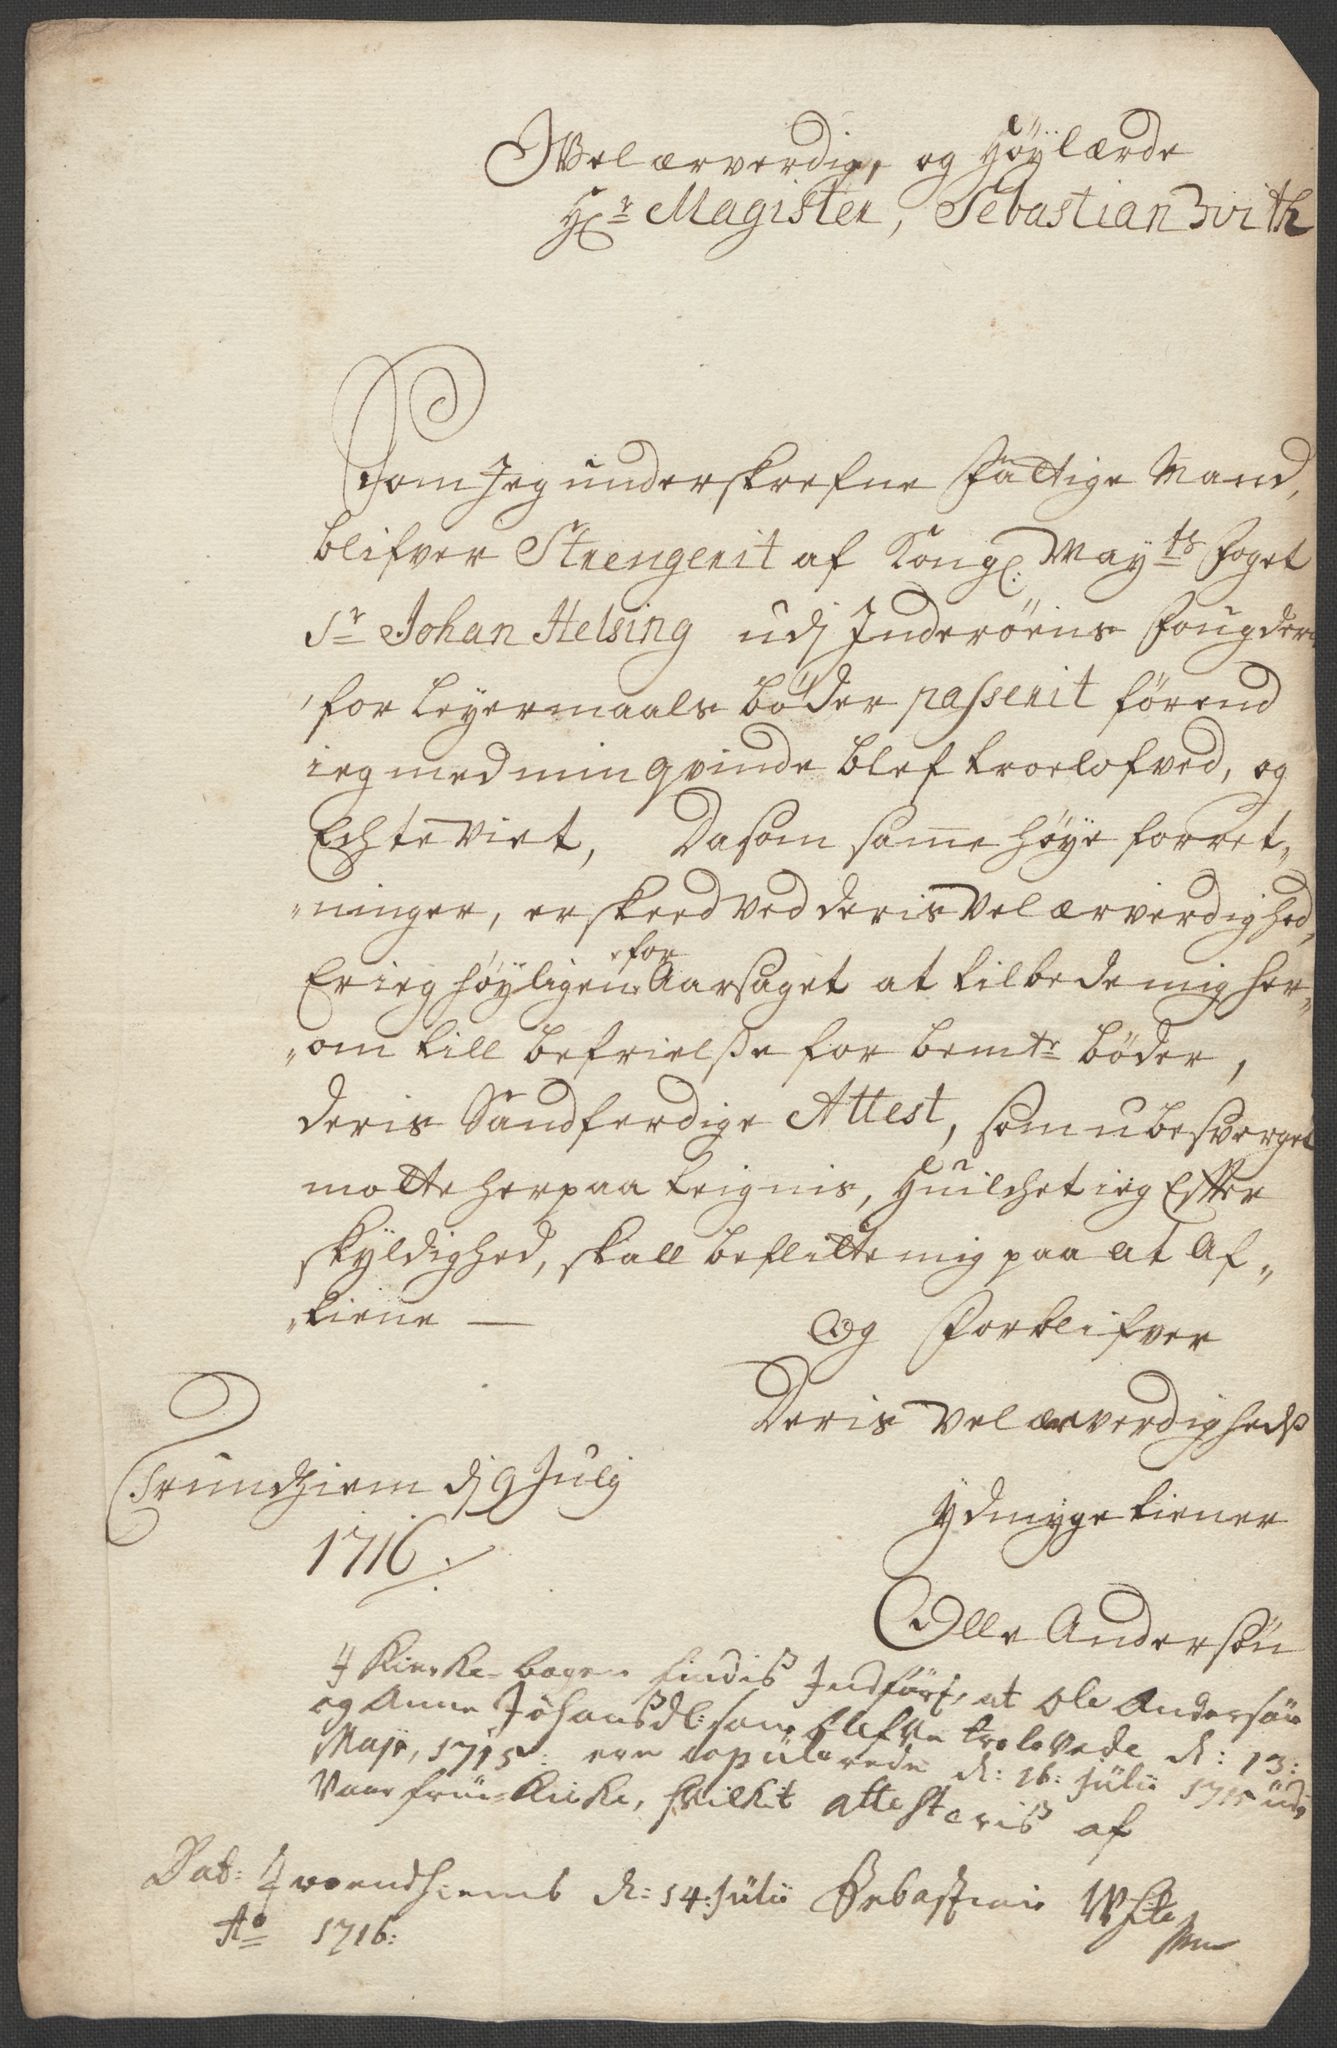 Vel ærverdig, og Høÿlærde
Hr Magister, Sebastian with
Som Jeg underskrefne fattige Mand,
blifver Strengerit af Kongl: Mayts foget
Sr Johan Helsing udj Inderöens fougderi
for Leyermaals böder passerit førend
ieg med min qvinde blef troelofved, og
Echteviet, Da som same høye forret„
„ninger, er skeed ved deris Vel ærverdighed,
Er ieg høyligen for Aarsaget at tilbede mig her„
„om till befrielße for bemte bøder,
deris Sandferdige Attest, som ubesverget
motte herpaa teignis, Huilchet ieg Effter
skyldighed, skall beflitte mig paa at Af„
„tiene —
Og forblifver
Deris Vel ærverdigheds
ydmyge tiener
Trundhiem dj 9 Julij
1716.
Olle Andersøn
I Kirke-bogen findis Indført, at Ole Andersøn
og Anne Johansdl: som blefve trolovede d: 13:
Maji, 1715: ere copulerede d: 16: Julii 1715 udi
Vaar frue-Kirke, hvilket attesteris af
Dat: Troendhiemb d: 14: Julii Sebastian With
Ao 1716: